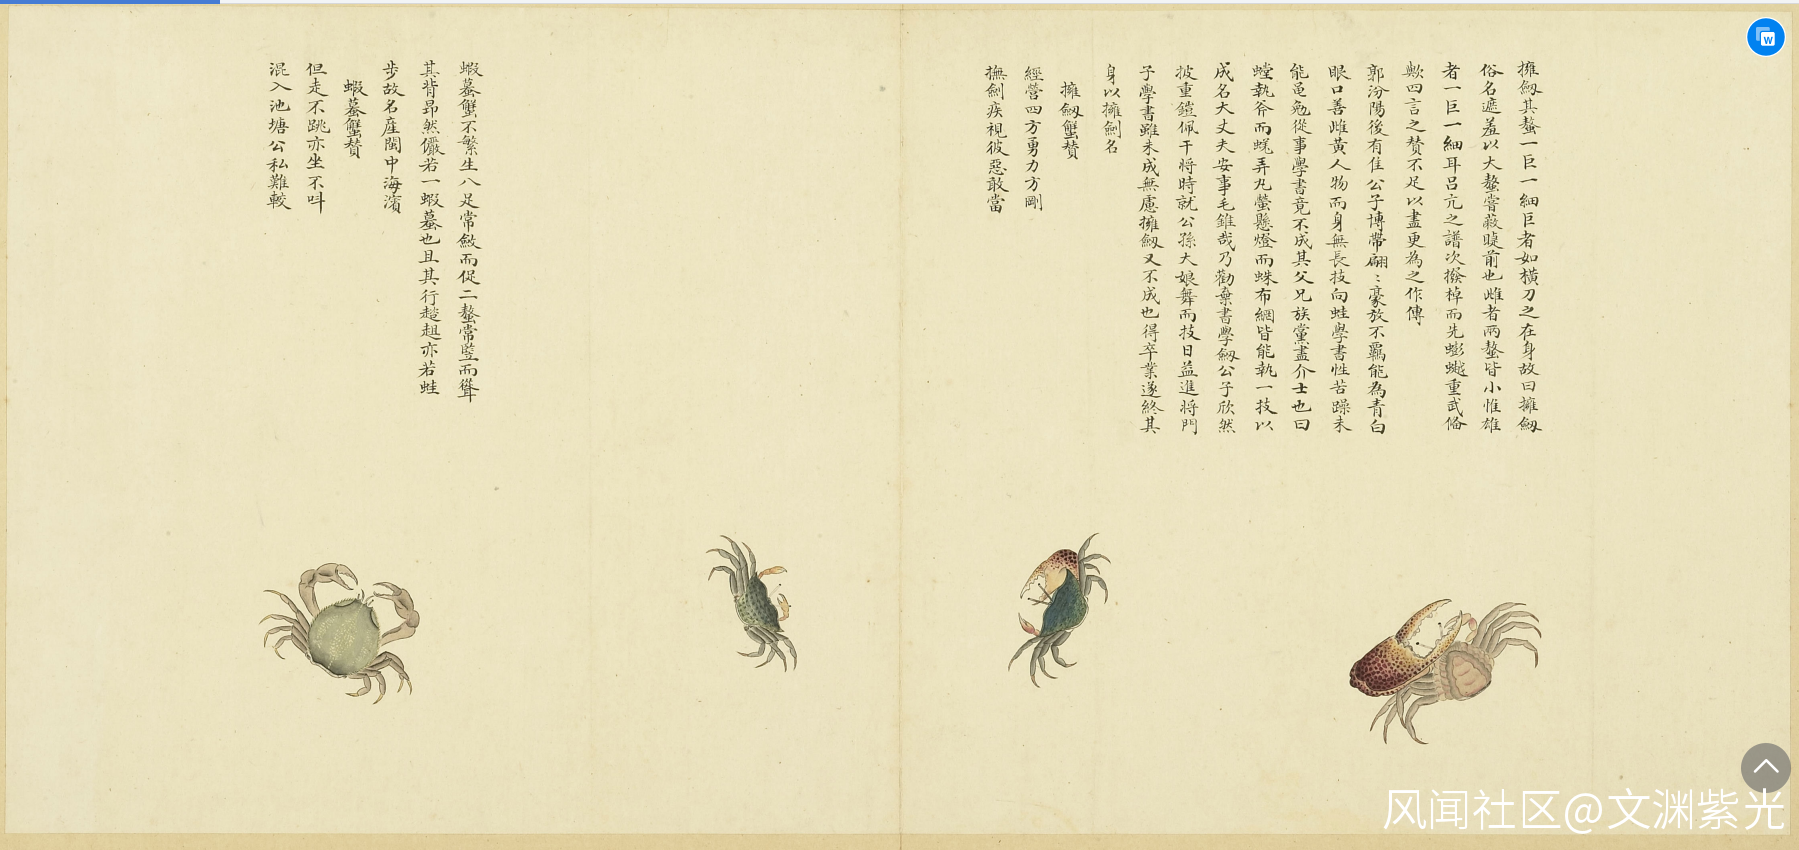 擁劔其螯一巨一細巨者如橫刀之在身故曰擁劔
俗名遮羞以大螯嘗蔽睫前也雌者兩螯皆小惟雄
者一巨一細耳呂亢之譜次撥棹而先蟛𧑅重武俻
歟四言之賛不足以盡更為之作傳
郭汾陽後有隹公子博帶翩〻豪放不羈能為青白
眼口善雌黃人物而身無長技向蛙學書性苦躁未
能黽勉從事學書竟不成其父兄族黨盡介士也曰
螳執斧而蜣弄丸螢懸燈而蛛布網皆能執一技以
成名大丈夫安事毛錐哉乃勸棄書學劔公子欣然
披重鎧佩干將時就公孫大娘舞而技日益進將門
子學書雖未成無慮擁劔又不成也得卒業遂終其
身以擁劍名
擁劔蟹賛
經營四方勇力方剛
撫劍疾視彼惡敢當
蝦蟇蟹不繁生八足常斂而促二螯常豎而聳
其背昂然儼若一蝦蟇也且其行趑趄亦若蛙
步故名產閩中海濱
蝦蟇蟹賛
但走不跳亦坐不呌
混入池塘公私難較
W
风闻社区@文渊紫光